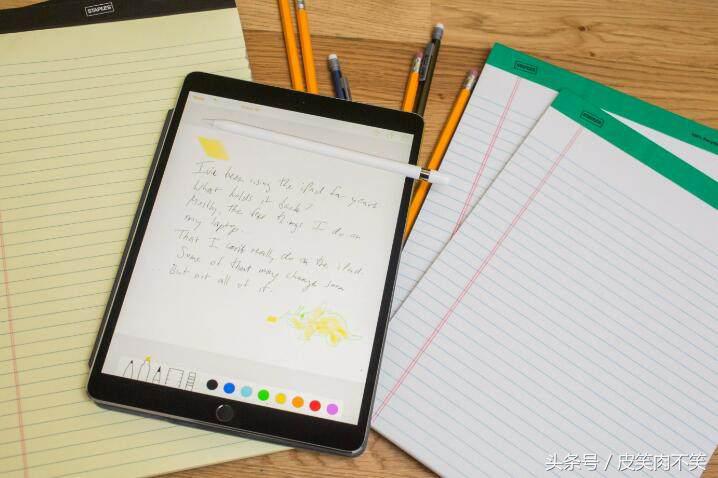 STAPLES
STAPLES
STAPLES
I've been using the iPad for years
What holds it back?
Mostly, the few things I do on
my laptop.
That I can't really do on the iPad.
Some of that may change soon
But not all of it.
头条号 / 皮笑肉不笑